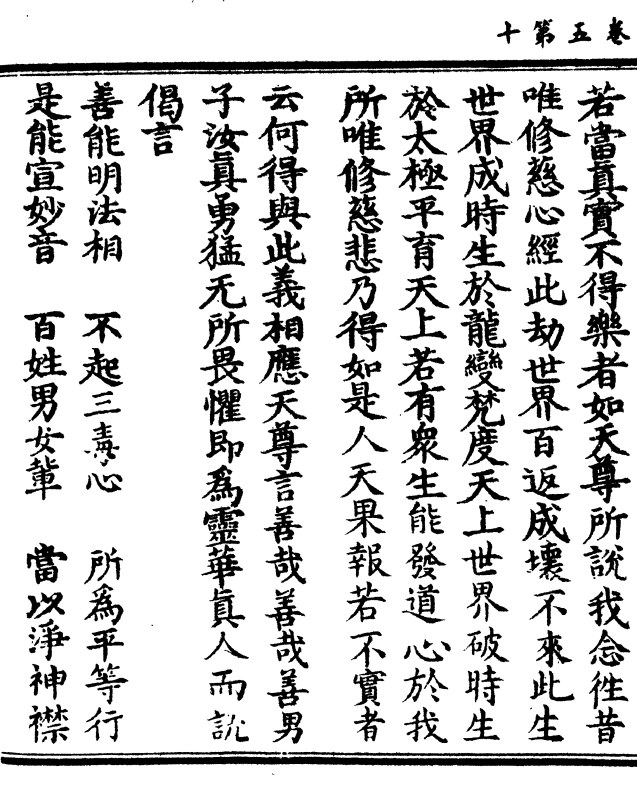 卷五第十
若當真實不得樂者如天尊所說我念徃昔
唯修慈心經此劫世界百返成壞不來此生
世界成時生於龍變梵度天上世界破時生
於太極平育天上若有衆生能發道心於我
所唯修慈悲乃得如是人天果報若不實者
云何得與此義相應天尊言善哉善哉善男
子汝眞勇猛无所畏懼即爲靈華眞人而說
偈言
善能明法相 不起三毒心 所爲平等行
是能宣妙音 百姓男女輩 當以淨神襟